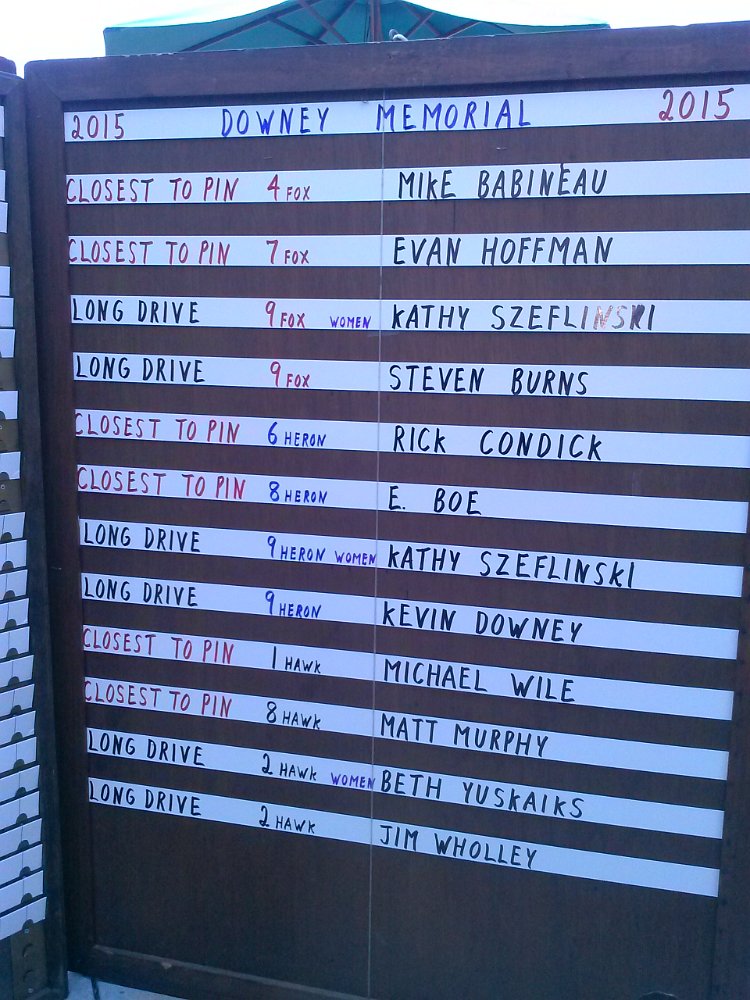 2015 DOWNEY MEMORIAL 2015
CLOSEST TO PIN 4 FOX MIKE BABINEAU
CLOSEST TO PIN 7 FOX EVAN HOFFMAN
LONG DRIVE 9 FOX WOMEN KATHY SZEFLINSKI
LONG DRIVE 9 FOX STEVEN BURNS
CLOSEST TO PIN 6 HERON RICK CONDICK
CLOSEST TO PIN 8 HERON E. BOE
LONG DRIVE 9 HERON WOMEN KATHY SZEFLINSKI
LONG DRIVE 9 HERON KEVIN DOWNEY
CLOSEST TO PIN 1 HAWK MICHAEL WILE
CLOSEST TO PIN 8 HAWK MATT MURPHY
LONG DRIVE 2 HAWK WOMEN BETH YUSKAIKS
LONG DRIVE 2 HAWK JIM WHOLLEY